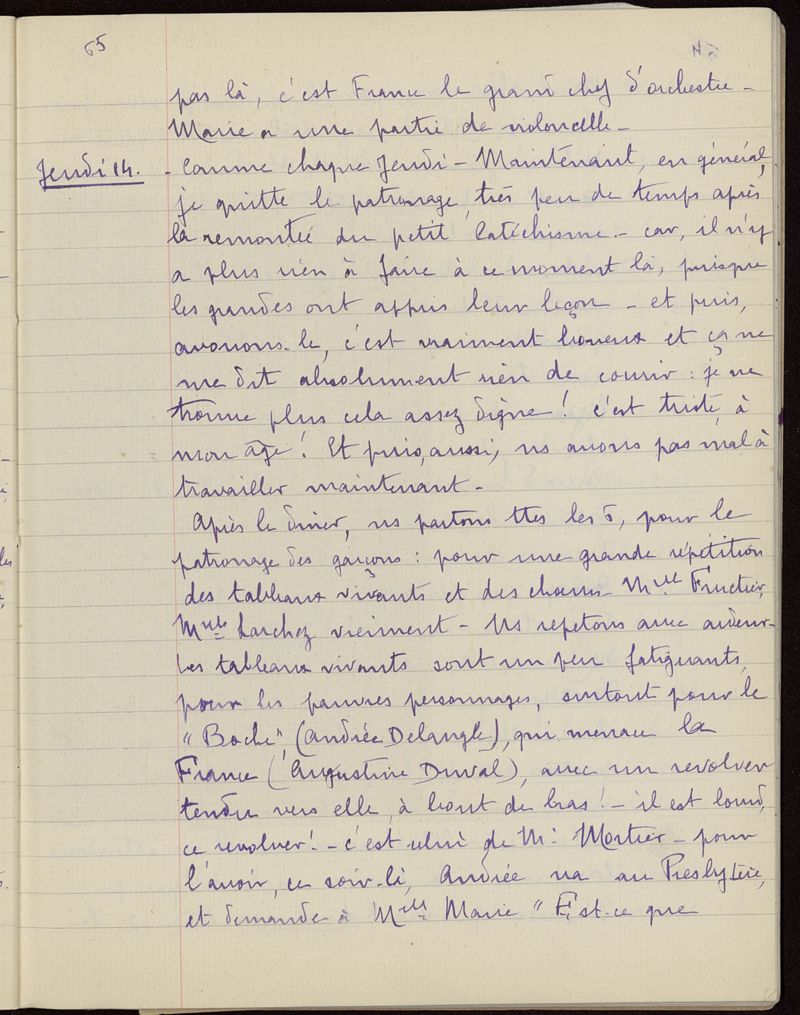 65
pas là, c'est France le grand chef d'orchestre -
Marie a une partie de violoncelle -
Jeudi 14. - Comme chaque Jeudi - Maintenant, en général,
je quitte le patronage, très peu de temps après
la remontée du petit Catéchisme - car, il n'y
a plus rien à faire à ce moment là, puisque
les grandes ont appris leur leçon - et puis,
avouons-le, c'est vraiment boueux et ça ne
me dit absolument rien de courir : je ne
trouve plus cela assez digne ! c'est triste, à
mon âge ! Et puis, aussi, ns avons pas mal à
travailler maintenant -
Après le dîner, ns partons ttes les 5, pour le
patronage des garçons : pour une grande répétition
des tableaux vivants et des chœurs - Mlle Fructier,
Mlle Larchez viennent - Ns repetons avec ardeur -
Les tableaux vivants sont un peu fatiguants,
pour les pauvres personnages, surtout pour le
"Boche", (Andrée Delangle), qui menace la
France (Augustine Duval), avec un revolver
tendu vers elle, à bout de bras ! - il est lourd,
ce revolver ! - c'est celui de Mr Mortier - pour
l'avoir, ce soir-là, Andrée va au Presbytère,
et demande à Melle Marie "Est-ce que